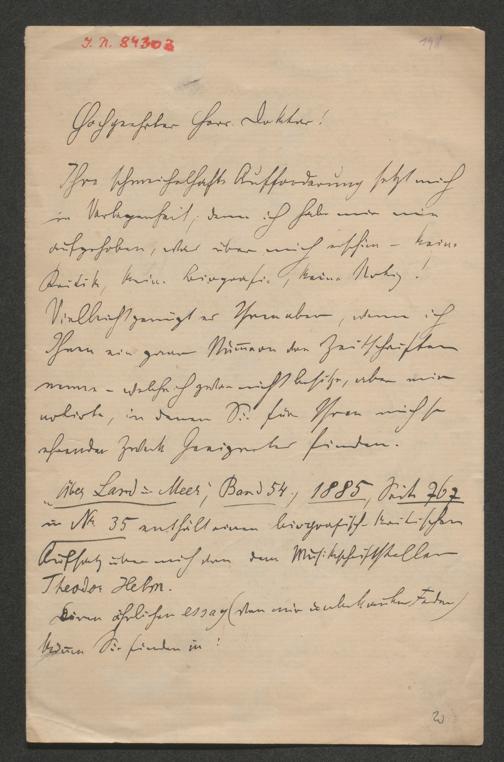 J. N. 84303
Hochgeehrter Herr Doktor!
Ihre schmeichelhafte Aufforderung setzt mich
in Verlegenheit, denn ich habe mir nie
aufgehoben, was über mich erschien – keine
Kritik, keine Biografie, keine Notiz!
Vielleicht genügt es Ihnen aber, wenn ich
Ihnen ein paar Nummern der Zeitschriften
nenne – welche ich zwar nicht besitze, aber mir
notirte, in denen Sie für Ihren mich so
ehrenden Zweck Geeignetes finden.
„Über Land u Meer", Band 54., 1885, Seite 767
u Nr. 35 enthält einen biografisch kritischen
Aufsatz über mich von dem Musikschriftsteller
Theodor Helm.
Einen ähnlichen essay (von mir unbekannter Feder)
Sie finden in: